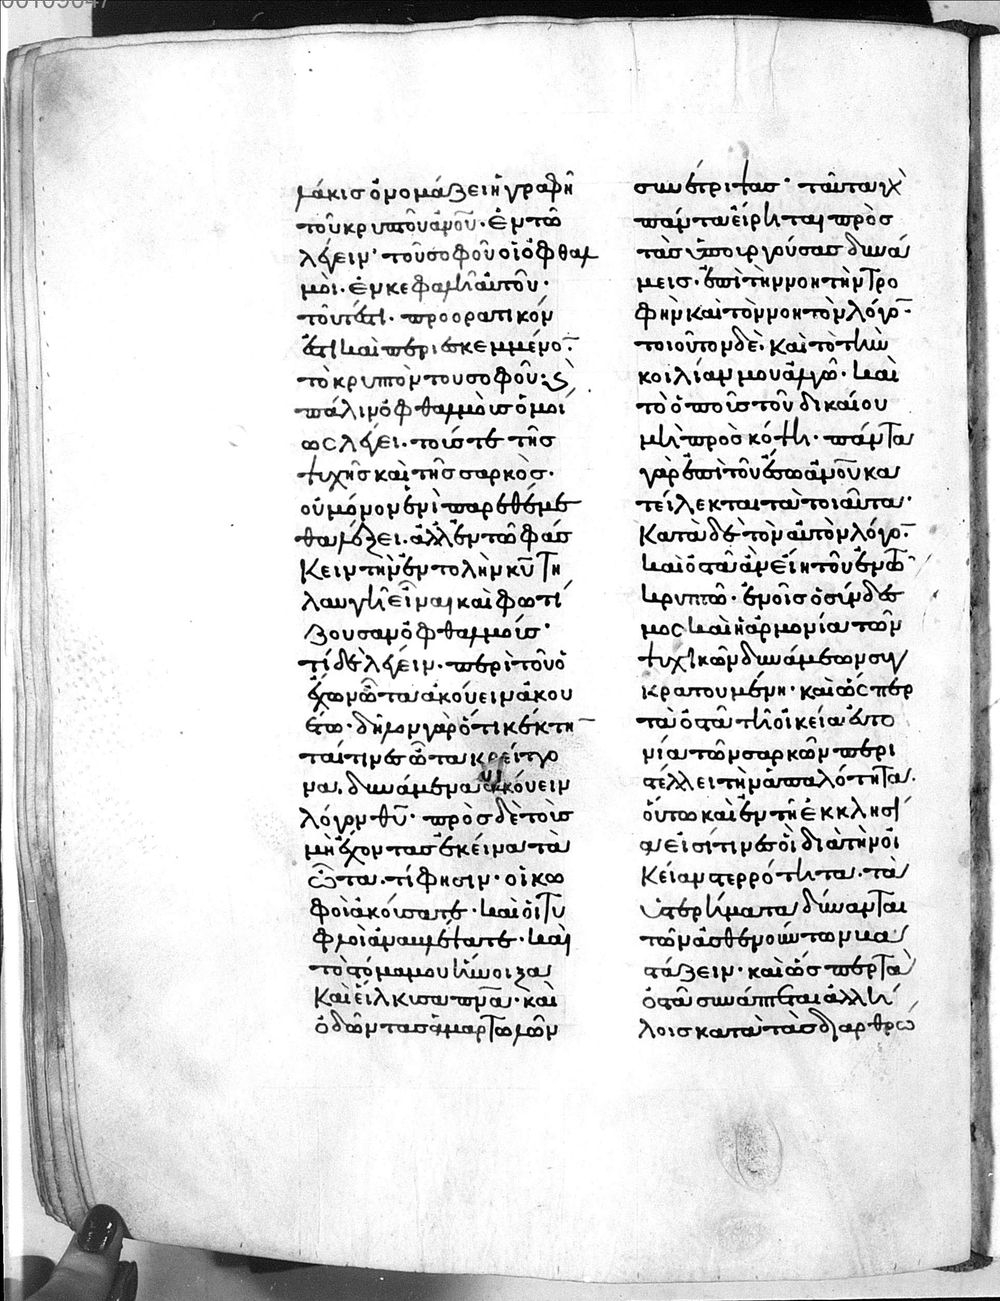 λάκις ὀνομάζει ἡ γραφὴ
τοῦ κρυπτοῦ ἀνοῦ· ἐν τῶ
λέγειν· τοῦ σοφοῦ οἱ ὀφθαλ
μοὶ· ἐν κεφαλῆ αὐτοῦ·
τουτέστι· προορατικόν
ἐστι καὶ περιεσκεμμένον
τὸ κρυπτὸν του σοφοῦ·
πάλιν ὀφθαλμοὺς ὁμοί
ως λέγει· τούς τε τῆς
ψυχῆς καὶ τῆς σαρκὸς·
οὐ μόνον ἐν ὧ παρεθέμε
θα λέξει· ἀλλ' ἐν τῶ φάσ
κειν τὴν ἐντολὴν κυ τη
λαυγῆ εἶναι καὶ φωτί
ζουσαν ὀφθαλμούς·
τί δὲ λέγειν· περὶ τοῦ ὁ
ἔχων ὦτα ἀκούειν ἀκου
έτω· δῆλον γὰρ ὅτι κέκτη
ταί τινες ὦτα κρείττο
να, δυνάμενα ἀκούειν
λόγον θυ· πρὸς δὲ τοὺς
μὴ ἔχοντας ἐκεῖνα τὰ
ὦτα· τί φησιν· οἱ κω
φοὶ ἀκούσατε· καὶ οἱ τυ
φλοὶ ἀναβλέψατε· καὶ
τὸ στόμα μου ἤνοιξα
καὶ εἵλκυσα πνα· καὶ
ὀδόντας ἁμαρτωλῶν
συνέτριψας· ταῦτα γὰρ
πάντα εἴρηται πρὸς
τὰς ὑπουργούσας δυνά
μεις· ἐπὶ τὴν νοητὴν τρο
φὴν καὶ τὸν νοητὸν λόγον·
τοιοῦτον δὲ· καὶ τὸ τὴν
κοιλίαν μου ἀλγῶ· καὶ
τὸ ὁ ποῦς τοῦ δικαίου
μὴ προσκόψη· πάντα
γὰρ ἐπὶ τοῦ ἔσω ἀνοῦ κα
τείλεκται τὰ τοιαῦτα·
Κατὰ δὲ τὸν αὐτὸν λόγον·
καὶ ὀστᾶ ἂν εἴη τοῦ ἐν τῶ
κρυπτῶ· ἐν οἷς ὁ σύνδεσ
μος καὶ ἡ ἁρμονία τῶν
ψυχικῶν δυνάμεων συγ
κρατουμένη· καὶ ὥσπερ
τὰ ὀστᾶ τῆ οἰκεία εὐτο
νία τῶν σαρκῶν περι
στέλλει τὴν ἁπαλότητα·
οὕτω καὶ ἐν τῆ ἐκκλησί
α εἰσί τινες οἱ διὰ τὴν οἰ
κείαν στερρότητα· τὰ
ὑστερήματα δύνανται
τῶν ἀσθενούντων βα
στάζειν· καὶ ὥσπερ τὰ
ὀστᾶ συνάπτεται ἀλλή
λοις κατὰ τὰς διαρθρώ